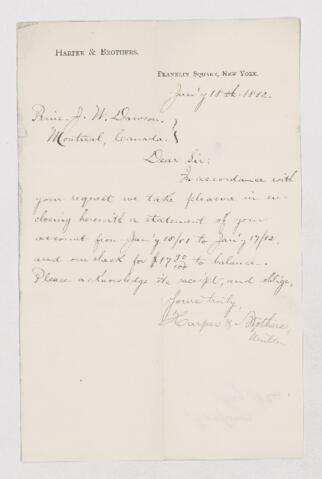 HARPER & BROTHERS.
FRANKLIN SQUARE, NEW YORK.
Jan'y 18th 1882.
Prin. J. W. Dawson,
Montreal, Canada.
Dear Sir:
In accordance with
your request we take pleasure in en-
closing herewith a statement of your
account from Jan'y 18/81 to Jan'y 17/82,
and our check for $17 30/100 to balance.
Please acknowledge its receipt, and oblige,
Yours truly,
Harper & Brothers,